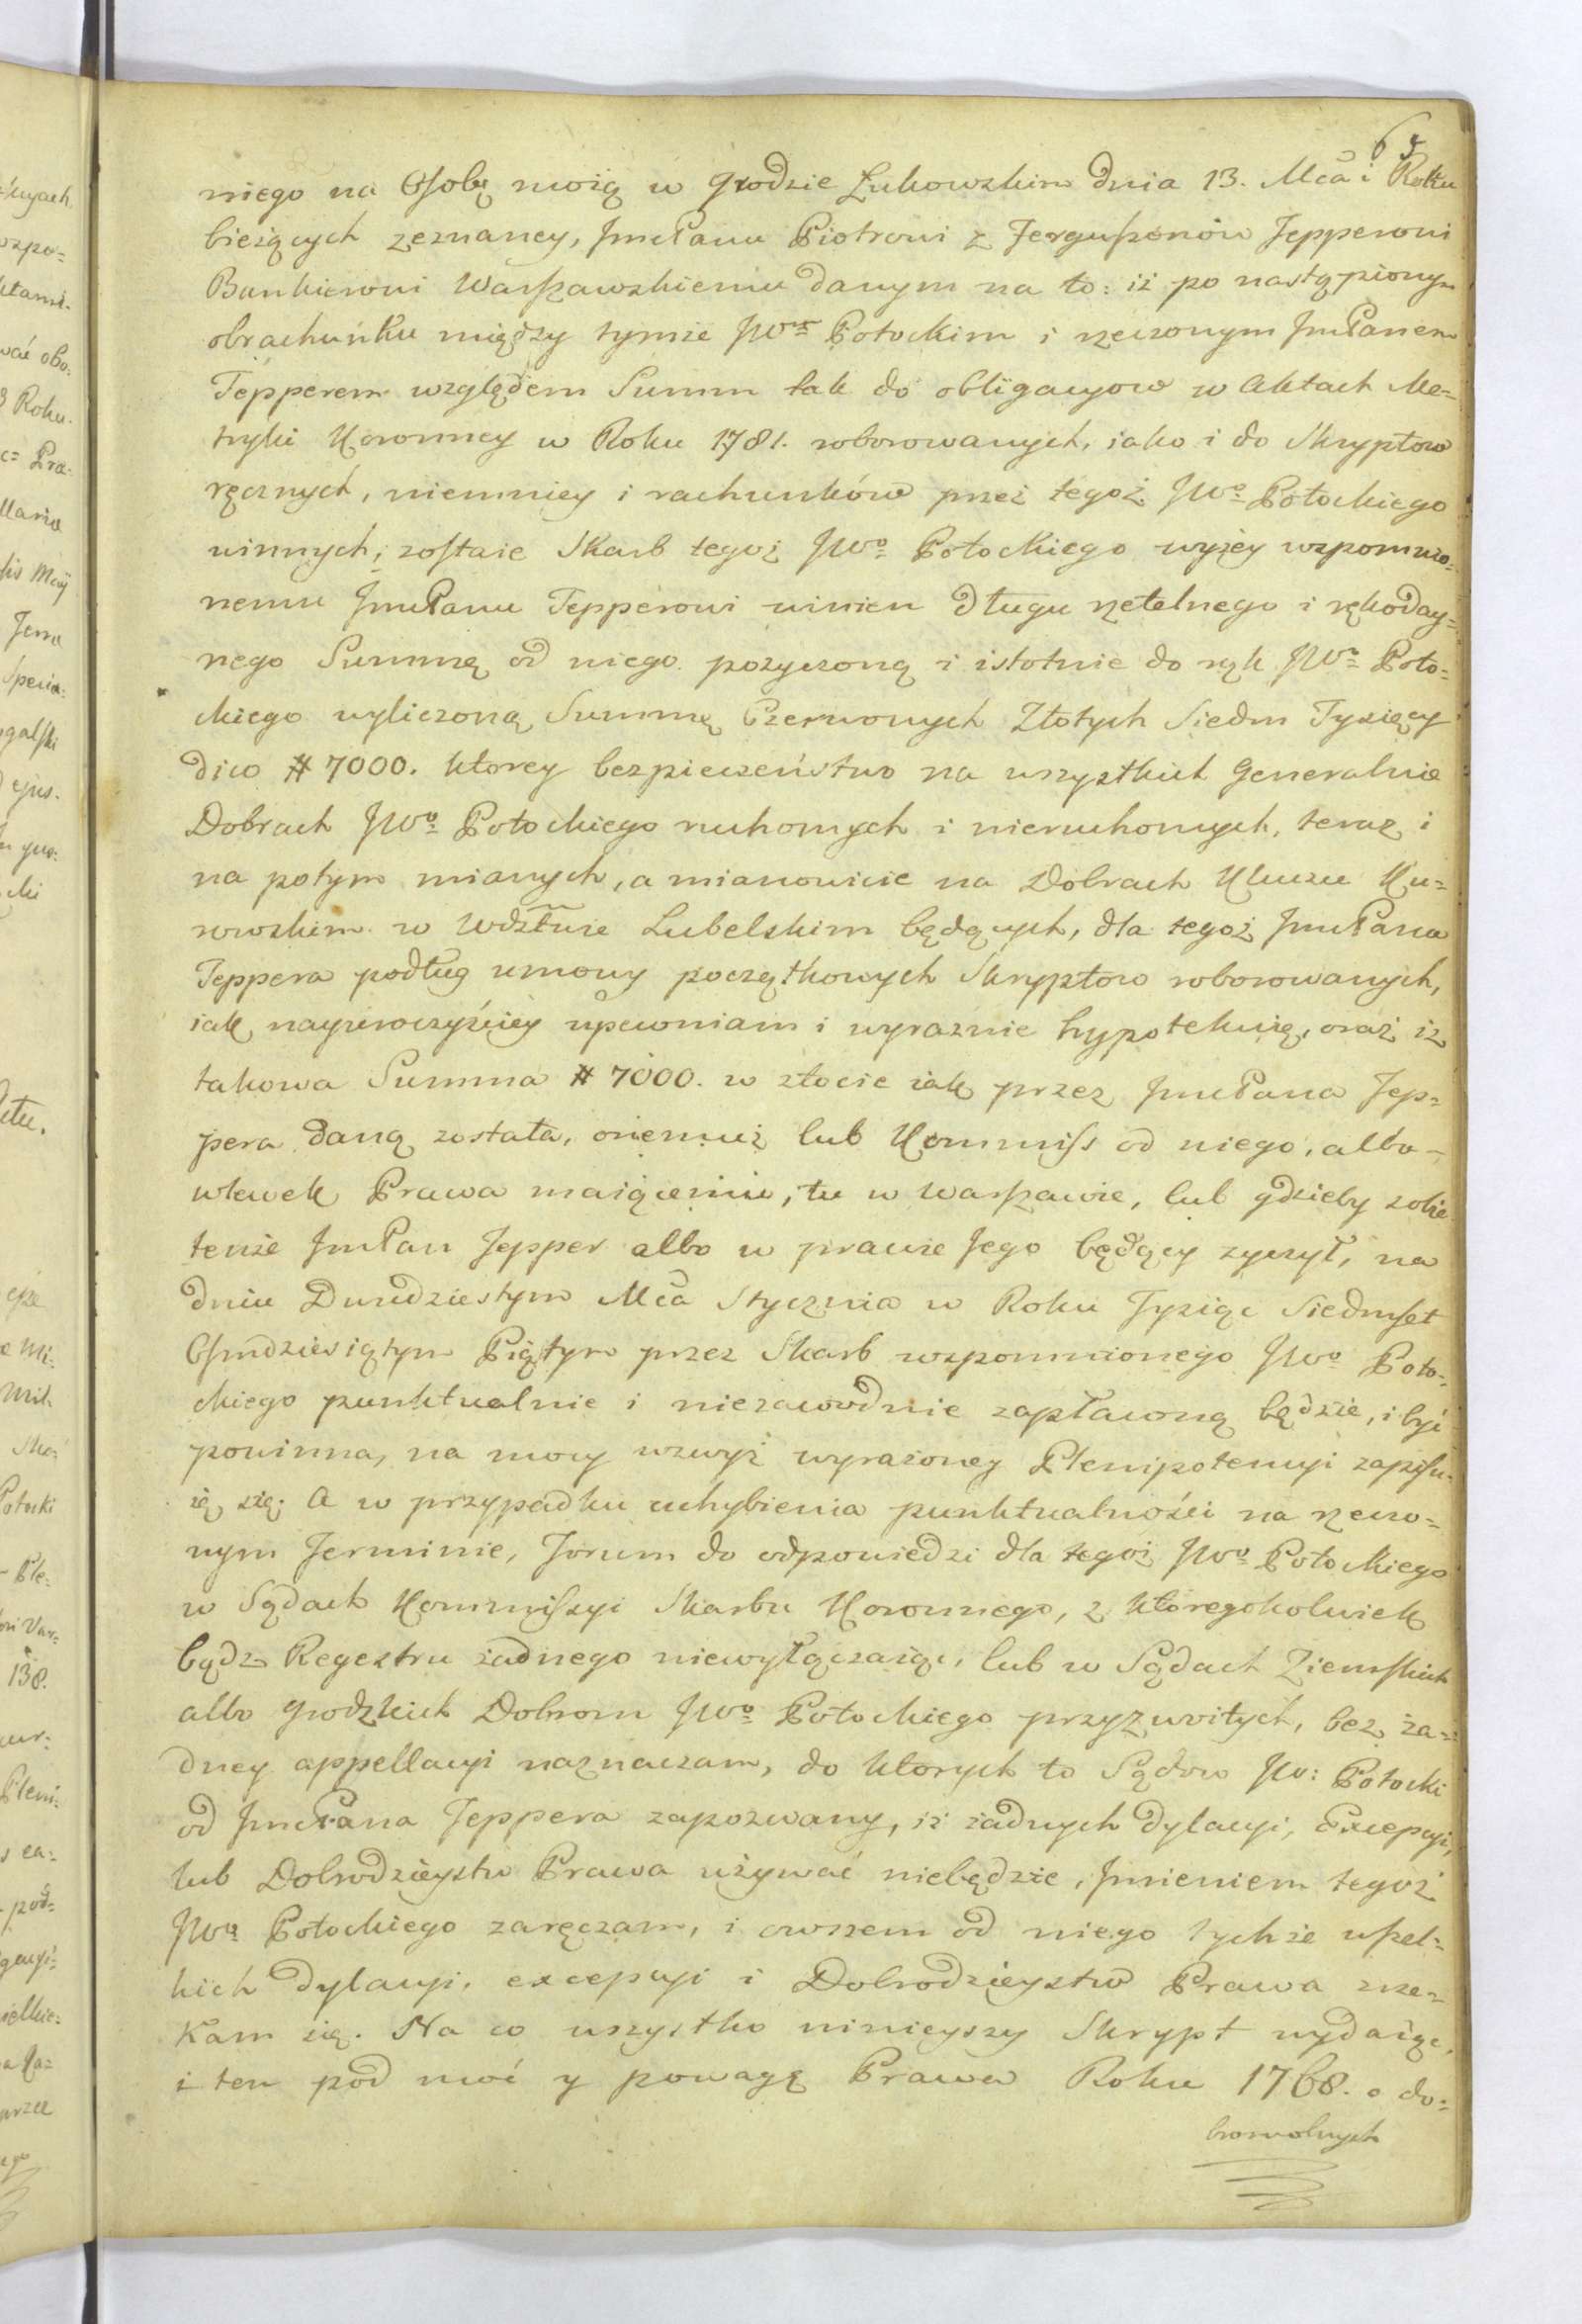 65
niego na Osobę moią w Grodzie Łukowskim dnia 13. Mca i Roku
bieżących zeznaney, JmcPanu Piotrowi z Fergusonów Tepperowi
Bankierowi Warszawskiemu danym na to: iż po nastąpionym
obrachunku między tymże JWm Potockim i rzeczonym JmcPanem
Tepperem względem Summ tak do obligacyow w Aktach Me=
tryki Koronney w Roku 1781. roborowanych, iako i do Skryptow
ręcznych, niemniey i rachunków przez tegoż JWo Potockiego
winnych; zostaie Skarb tegoż JWo Potockiego wyżey wspomnio=
nemu JmcPanu Tepperowi winien Długu rzetelnego i rękoday=
nego Summę od niego pożyczoną i istotnie do rąk JWo Poto=
ckiego wyliczoną, Summę Czerwonych Złotych Siedm Tysięcy
dico # 7000. ktorey bezpieczeństwo na wszystkich Generalnie
Dobrach JWo Potockiego ruchomych i nieruchomych, teraz i
na potym mianych, a mianowicie na Dobrach Kluczu Ku=
rowskim w Wdztwie Lubelskim będących, dla tegoż JmcPana
Teppera podług umowy początkowych Skryptow roborowanych,
iak nayuroczyściey upewniam i wyraznie hypotekuię, oraz iż
takowa Summa # 7000. w złocie iak przez JmcPana Tep=
pera daną została, onemuż lub Kommiss od niego, albo-
wlewek Prawa maiącemu, tu w Warszawie, lub gdzieby sobie
tenże JmcPan Tepper albo w prawie Jego będący zyczył, na
dniu Dwudziestym Mca Stycznia w Roku Tysiąc Siedmset
Osmdziesiątym Piątym przez Skarb wspomnionego JWo Poto=
ckiego punktualnie i niezawodnie zapłaconą będzie, i być
powinna, na mocy wzwyż wyrażoney Plenipotencyi zapisu=
ię się. A w przypadku uchybienia punktualności na rzeczo=
nym Terminie, Forum do odpowiedzi dla tegoż JWo Potockiego
w Sądach Kommiszyi Skarbu Koronnego, z ktoregokolwiek
bądz Regestru żadnego niewyłączaiąc, lub w Sądach Ziemskich
albo Grodzkich Dobrom JWo Potockiego przyzwoitych, bez ża=
dney appellacyi naznaczam, do ktorych to Sądow JW: Potocki
od JmcPana Teppera zapozwany, iż żadnych Dylacyi, Excepcyi,
lub Dobrodzieystw Prawa używać niebędzie, Jmieniem tegoż
JWo Potockiego zaręczam, i owszem od niego tychże wszel=
kich Dylacyi, excepcyi i Dobrodzieystw Prawa zrze=
kam się. Na co wszystko ninieyszy Skrypt wydaiąc,
i ten pod moc y powagę Prawa Roku 1768. o do=
browolnych